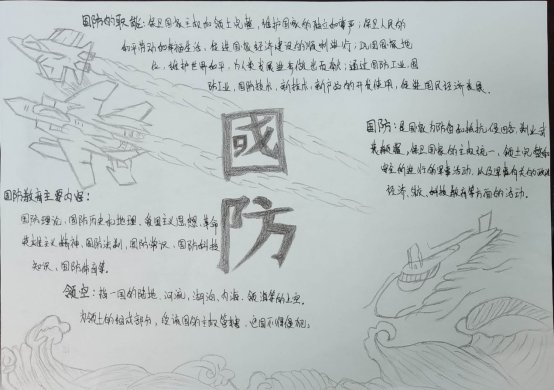 国防的职能：保卫国家主权和领土完整，维护国家的独立和尊严；保卫人民的
和平劳动和幸福生活，促进国家经济建设的顺利进行，巩固国家地
位，维护世界和平，为人类发展业务做出贡献；通过国防工业、国
防工业、国防技术、新技术、新产品的开发使用，促进国民经济发展。
國
防
国防：是国家为防备和抵抗侵略，制止武
装颠覆，保卫国家的主权统一、领土完整和
安全所进行的军事活动，以及军事有关的政治
经济、科技教育等方面的活动。
国防教育主要内容：
国防理论、国防历史和地理、爱国主义思想、革命
英雄主义精神、国防法制、国防常识、国防科技
知识、国防体育等。
领空：指一国的陆地、河流、湖泊、内海、领海等的上空，
为领土的组成部分，受该国的主权管辖，他国不得侵犯。